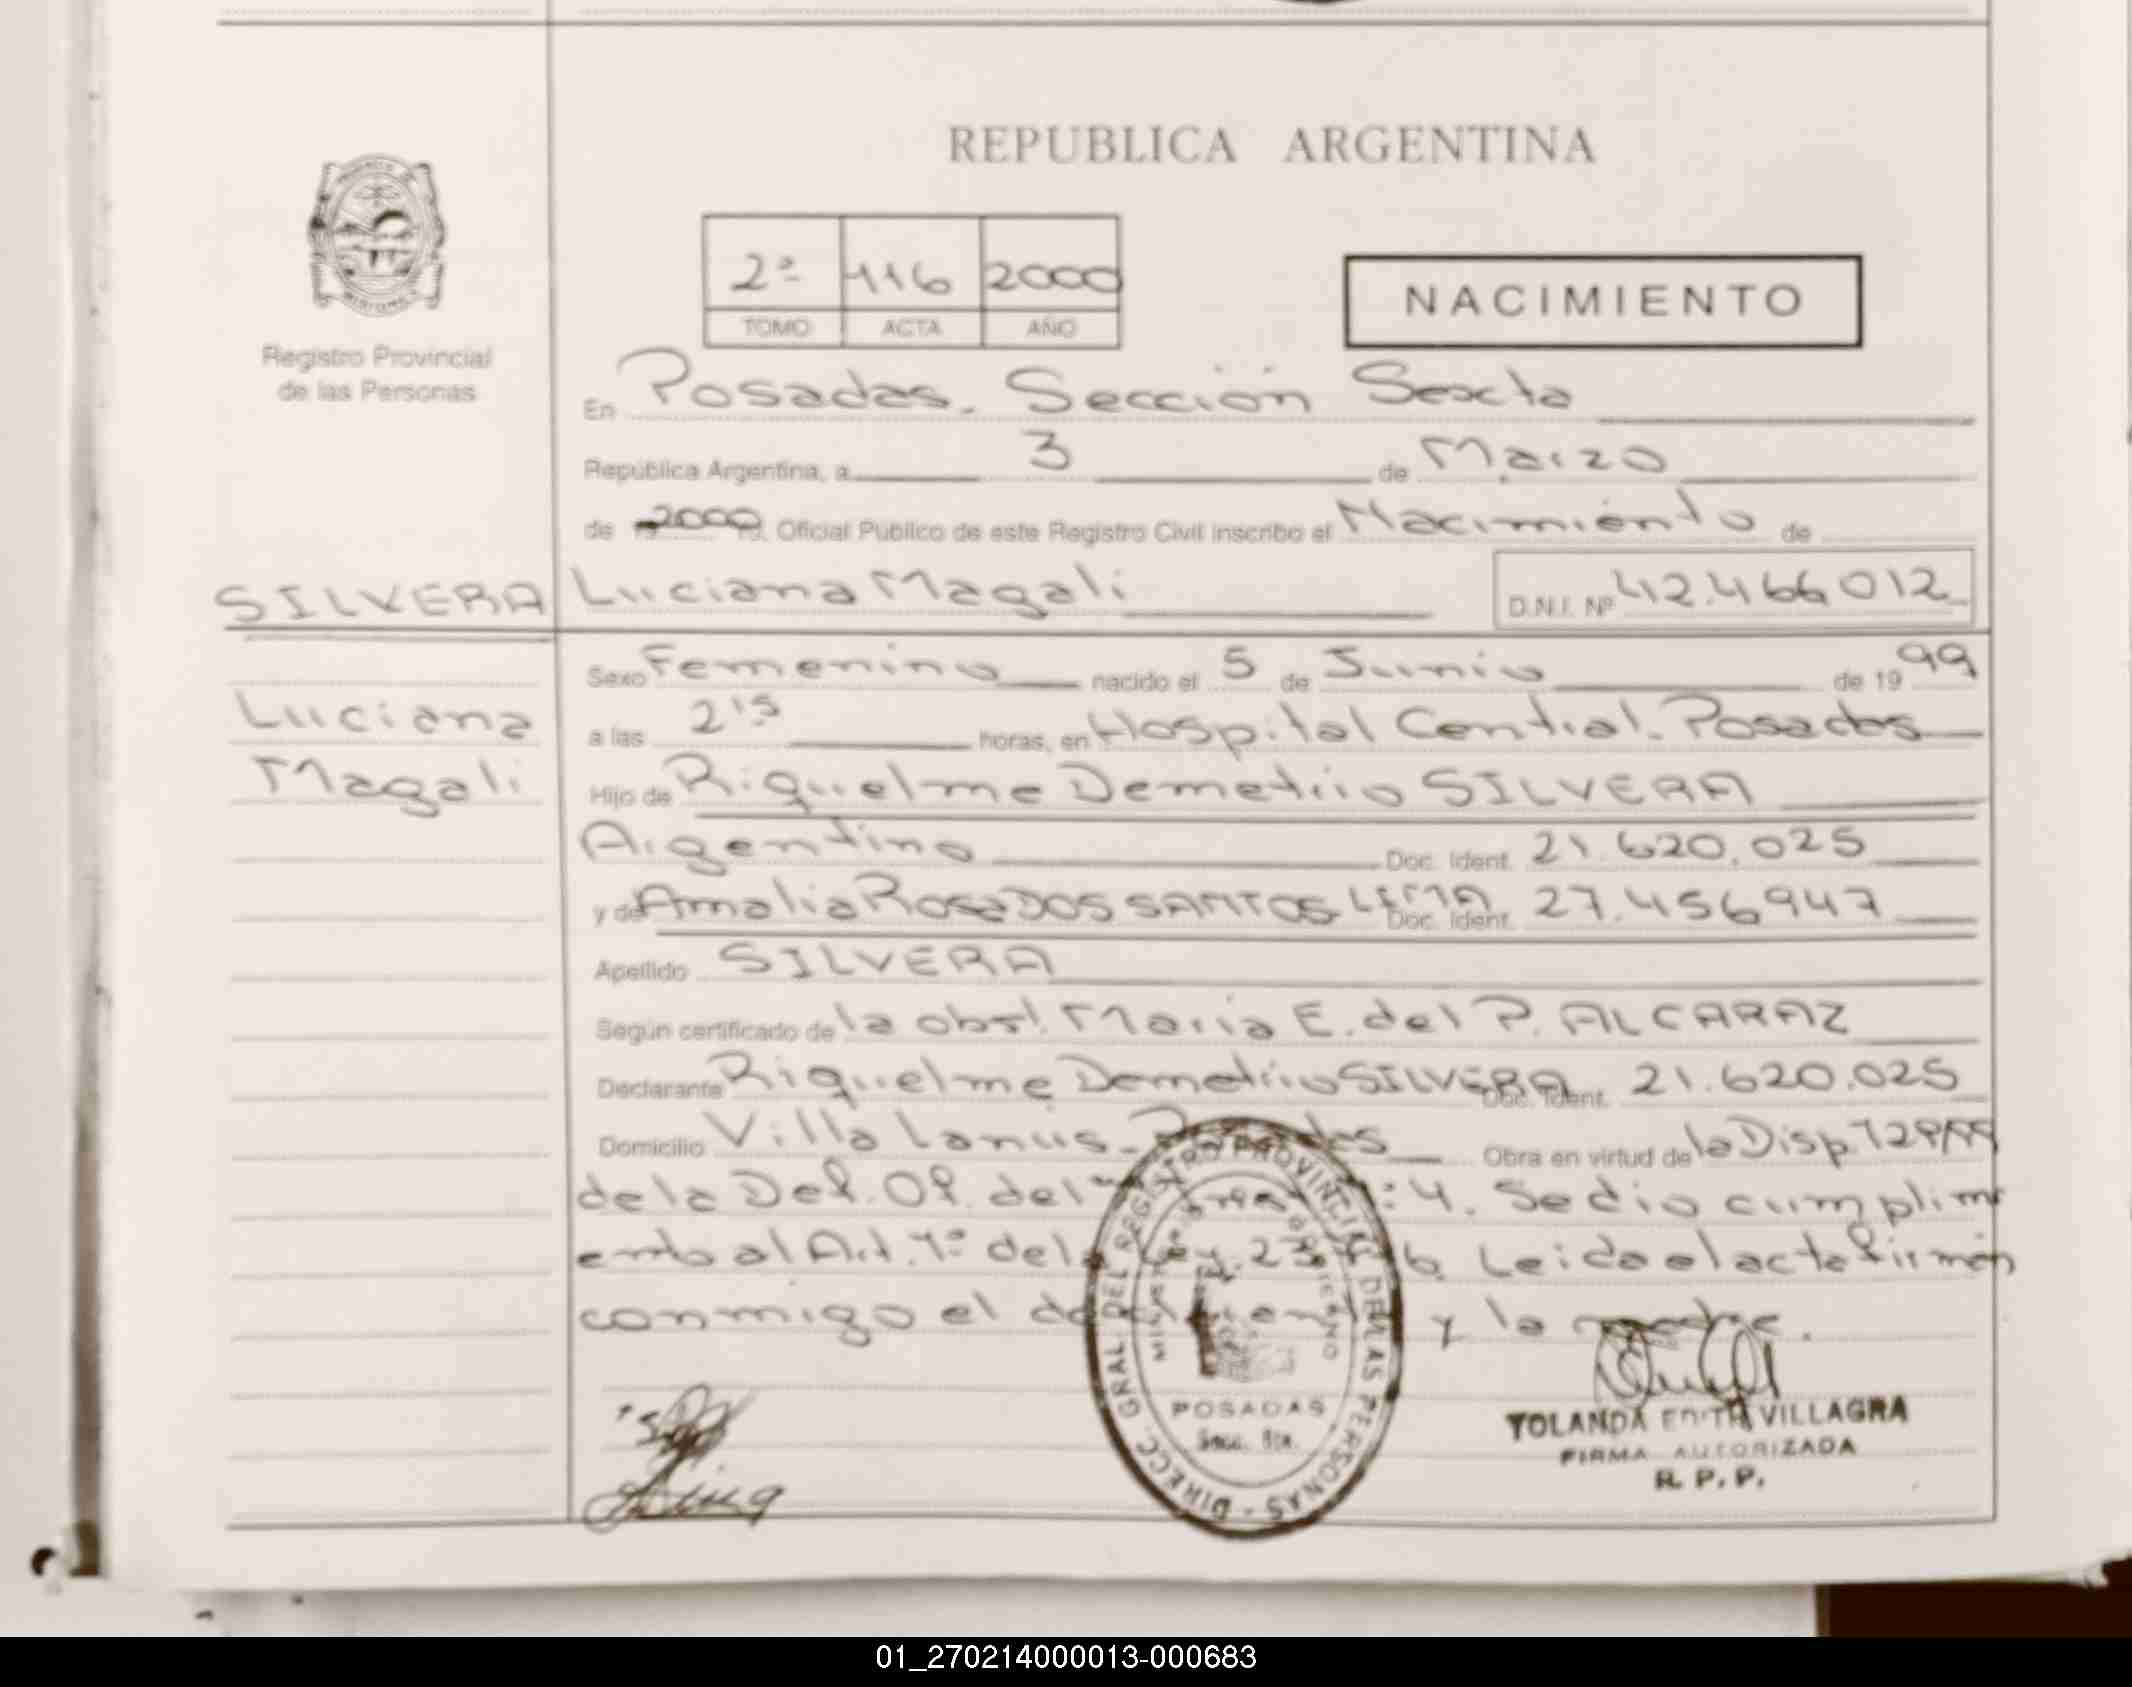 REPUBLICA ARGENTINA
2ª 116 2000
TOMO ACTA AÑO
NACIMIENTO
Registro Provincial
de las Personas
En Posadas. Sección Sexta
República Argentina, a 3 de Marzo
de 2000 Oficial Público de este Registro Civil inscribo el Nacimiento de
SILVERA Luciana Magali D.N.I. Nº 42.466012
Sexo Femenino nacido el 5 de Junio de 19 99
Luciana
Magali
a las 2'5 horas, en Hospital Central. Posadas
Hijo de Riquelme Demetrio SILVERA
Argentino Doc. Ident. 21.620.025
y de Amalia Rosa DOS SANTOS LIMA Doc. Ident. 27.456947
Apellido SILVERA
Según certificado de la obst. Maria E. del P. ALCARAZ
Declarante Riquelme Demetrio SILVERA Doc. Ident. 21.620.025
Domicilio Villa Lanus. Posadas Obra en virtud de la Disp.
de la Def. Of. del 4. Se dio cumplim
ento al Art. 1º de la Ley. Leido el acta firman
conmigo el y la madre.
DIRECC. GRAL. DEL REGISTRO PROVINCIAL DE LAS PERSONAS
POSADAS
Secc. 6ta.
YOLANDA EDITH VILLAGRA
FIRMA AUTORIZADA
R. P. P.
01_270214000013-000683